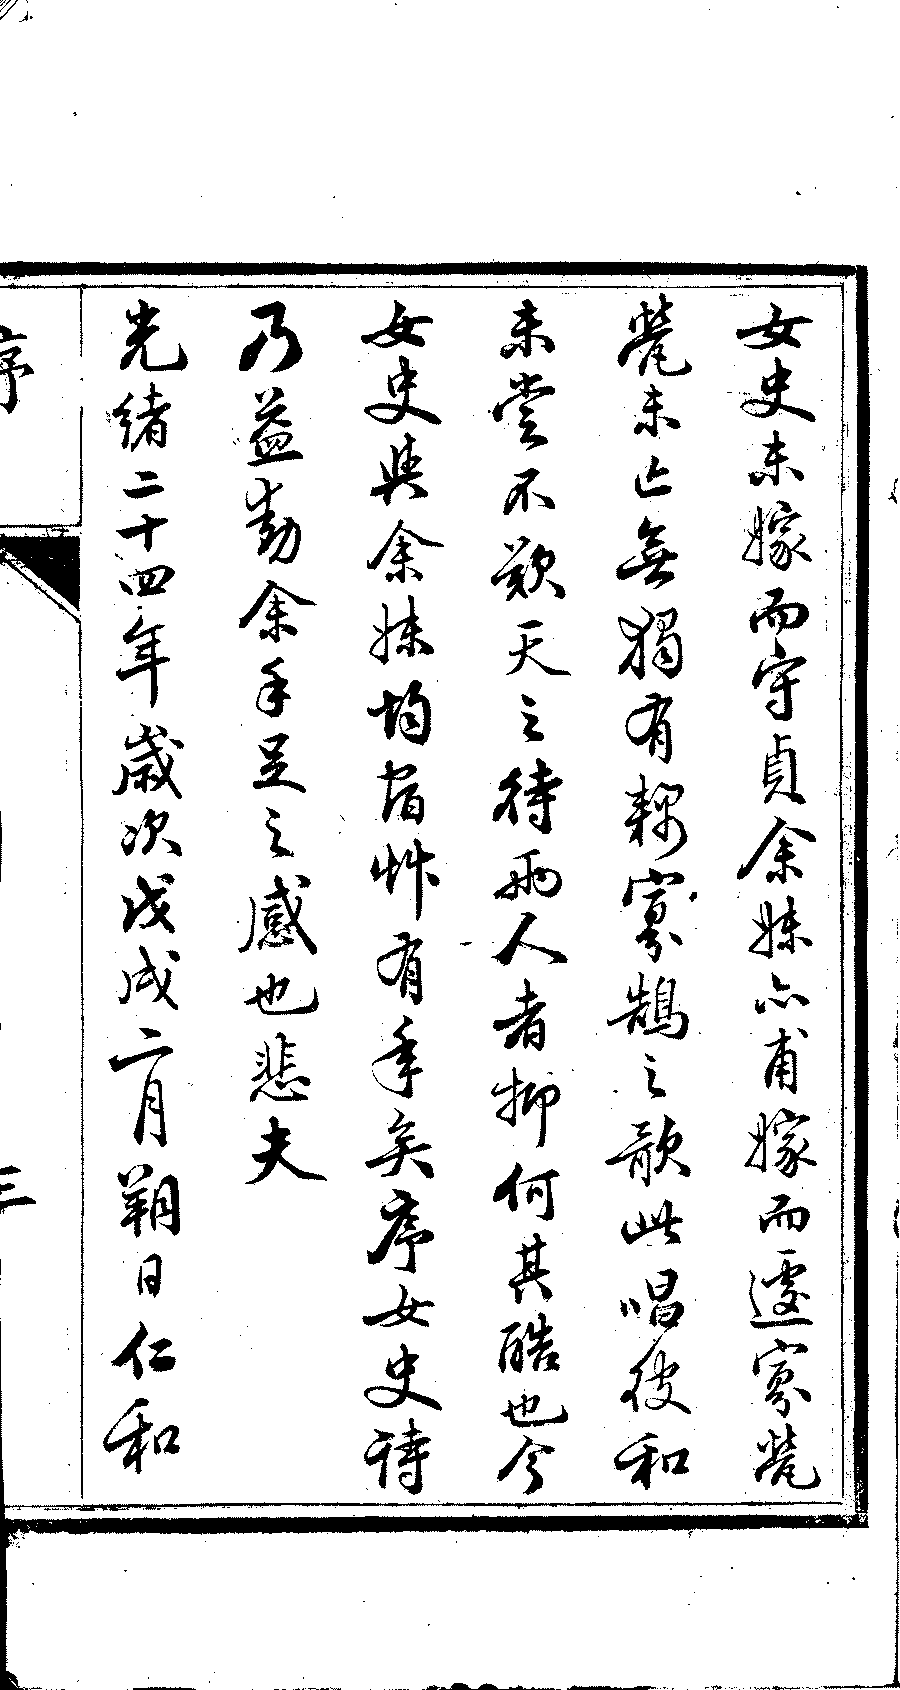 女史未嫁而守貞余妹亦甫嫁而遽寡煢
煢未亡無獨有耦寡鵠之歌此唱彼和
未嘗不歎天之待兩人者抑何其酷也今
女史與余妹均宿艸有年矣序女史詩
乃益動余手足之感也悲夫
光緒二十四年歲次戊戌二月朔日仁和
序
三